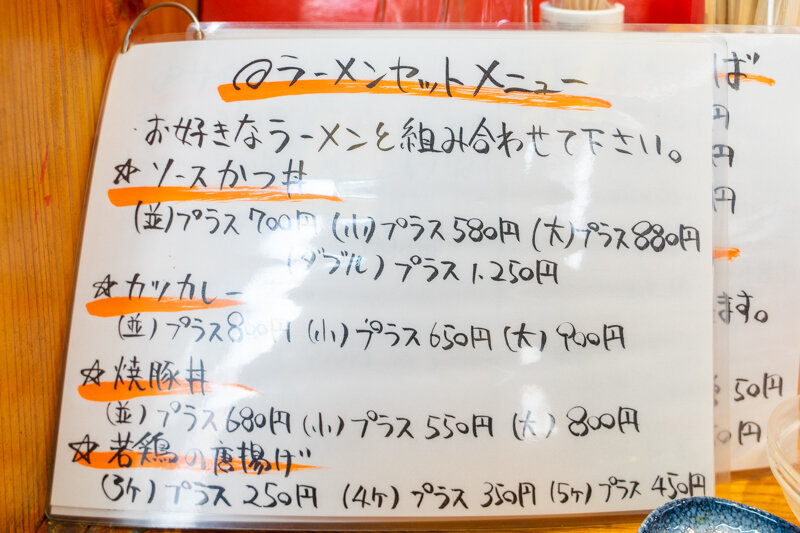 @ラーメンセットメニュー
お好きなラーメンと組み合わせて下さい。
☆ソースかつ丼
(並)プラス700円 (小)プラス580円 (大)プラス880円
(ダブル)プラス1.250円
☆カツカレー
(並)プラス800円 (小)プラス650円 (大)900円
☆焼豚丼
(並)プラス680円 (小)プラス550円 (大)800円
☆若鶏の唐揚げ
(3ヶ)プラス250円 (4ヶ)プラス350円 (5ヶ)プラス450円
ば
円
円
円
ます。
50円
0円